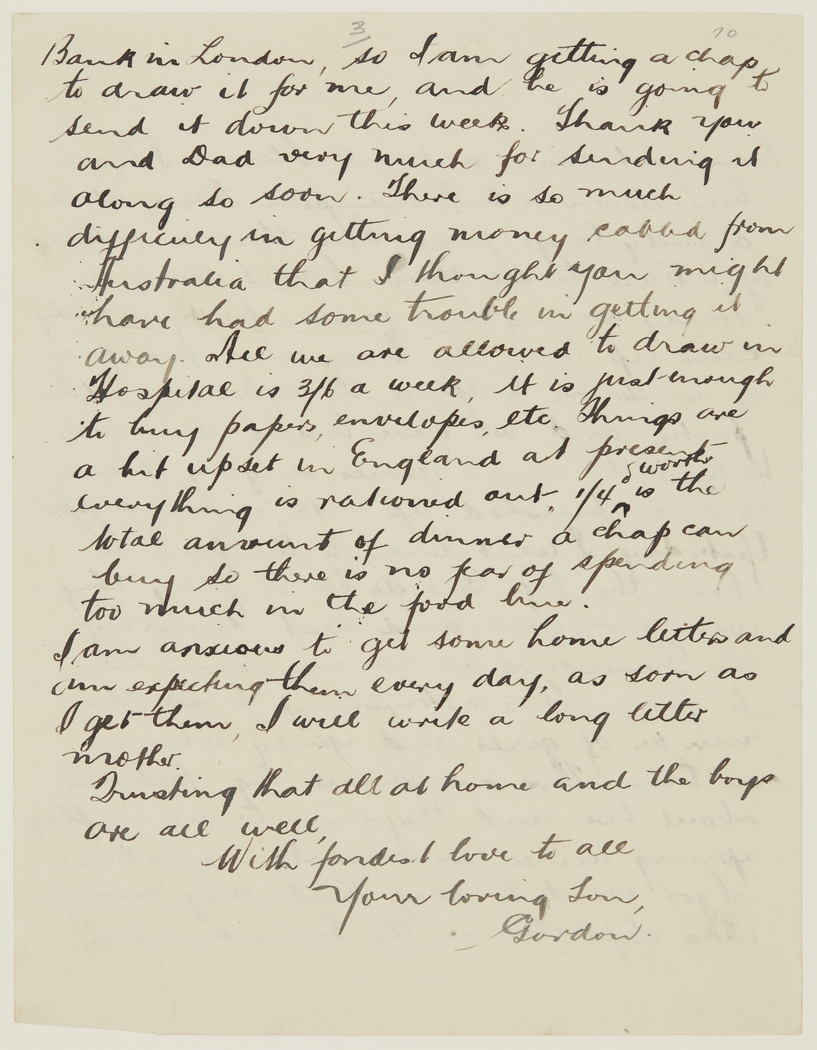 3/
70
Bank in London, so I am getting a chap
to draw it for me, and he is going to
send it down this week. Thank you
and Dad very much for sending it
along so soon. There is so much
difficulty in getting money cabled from
Australia that I thought you might
have had some trouble in getting it
away. All we are allowed to draw in
Hospital is 3/6 a week, it is just enough
to buy papers, envelopes, etc. Things are
a bit upset in England at present
everything is rationed out, 1/4d worth is the
total amount of dinner a chap can
buy so there is no fear of spending
too much in the food line.
I am anxious to get some home letters and
am expecting them every day, as soon as
I get them, I will write a long letter
mother.
Trusting that all at home and the boys
are all well,
With fondest love to all
Your loving Son,
Gordon.